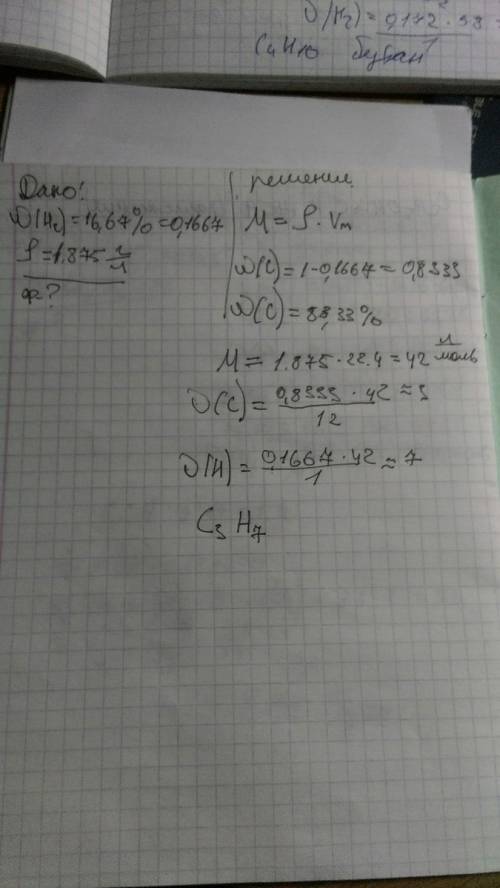 ω(H₂) = 0,172 · 58
C₄H₁₀ бутан
Дано:
ω(H₂) = 16,67% = 0,1667
ρ = 1.875 г/л
ф?
решение
M = ρ · Vm
ω(C) = 1 - 0,1667 = 0,8333
ω(C) = 83,33%
M = 1.875 · 22.4 = 42 г/моль
ν(C) = 0,8333 · 42 / 12 ≈ 3
ν(H) = 0,1667 · 42 / 1 ≈ 7
C₃H₇